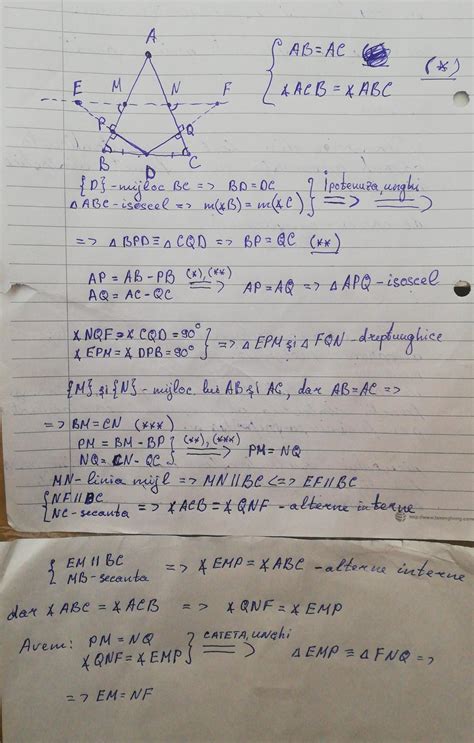 A
E M N F
P Q
B D C
{ AB = AC
∢ACB = ∢ABC (*)
{D} - mijloc BC => BD = DC } Ipotenuza, unghi
∆ ABC - isoscel => m(∢B) = m(∢C) => =>
=> ∆ BPD ≡ ∆ CQD => BP = QC (**)
AP = AB - PB (*), (**)
AQ = AC - QC => AP = AQ => ∆ APQ - isoscel
∢NQF = ∢CQD = 90°
∢EPM = ∢DPB = 90° } => ∆ EPM și ∆ FQN - dreptunghice
{M} și {N} - mijloc lui AB și AC, dar AB = AC =>
=> BM = CN (***)
PM = BM - BP } (**), (***)
NQ = CN - QC => PM = NQ
MN - linia mijl => MN || BC <=> EF || BC
{ NF || BC
NC - secanta => ∢ACB = ∢QNF - alterne interne
{ EM || BC
MB - secanta => ∢EMP = ∢ABC - alterne interne
dar ∢ABC = ∢ACB => ∢QNF = ∢EMP
Avem: PM = NQ } CATETA, UNGHI
∢QNF = ∢EMP => ∆ EMP ≡ ∆ FNQ =>
=> EM = NF